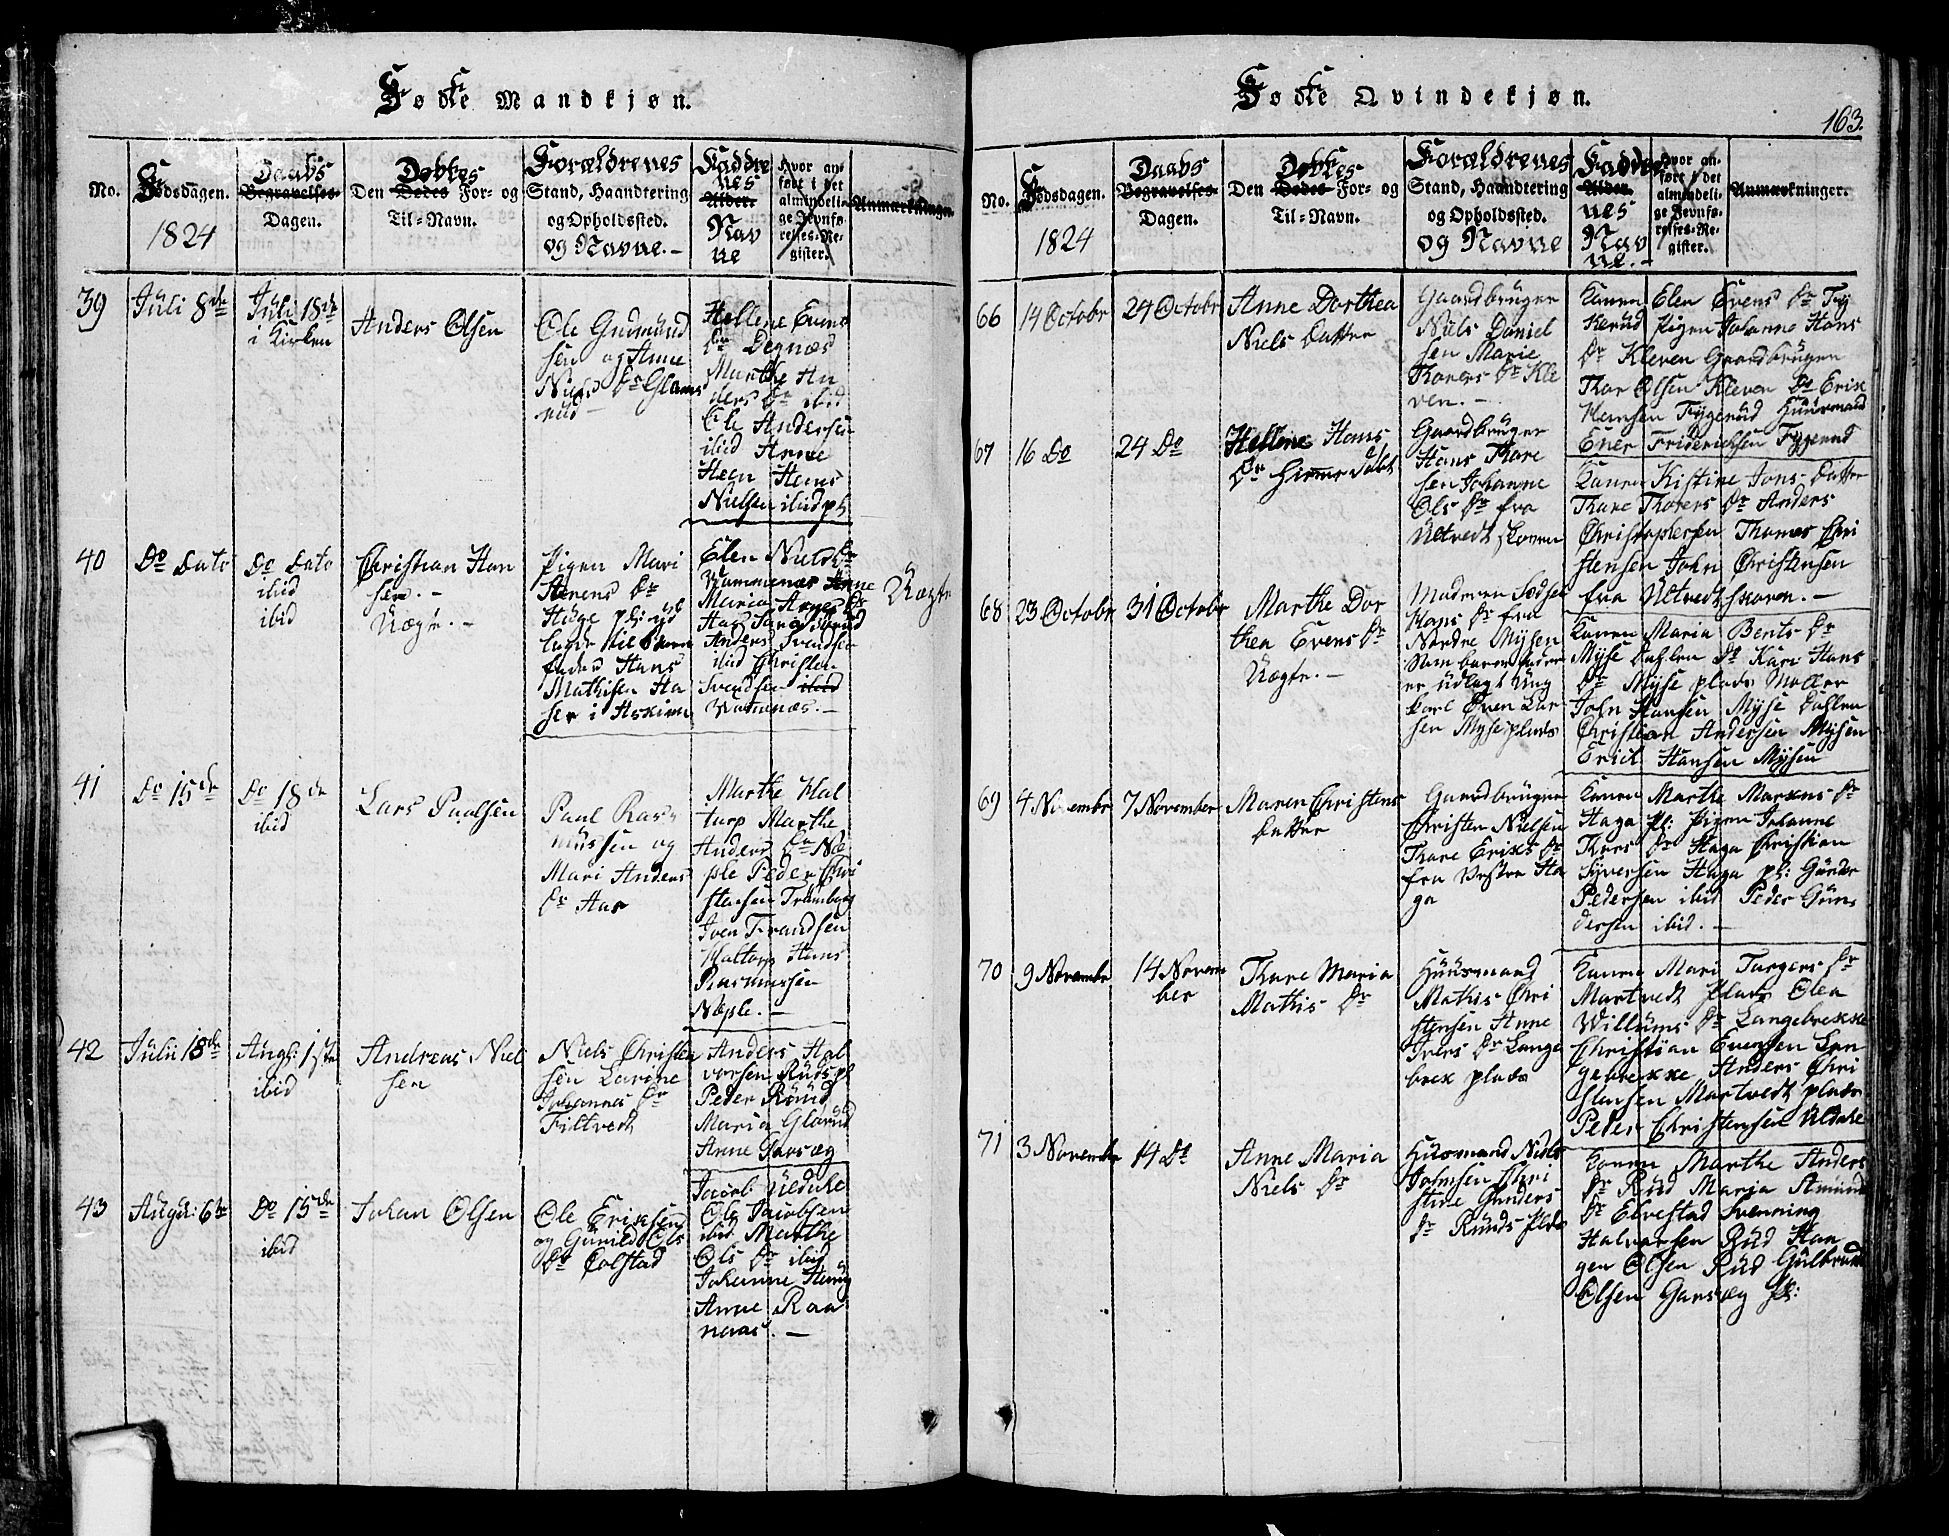 Fødte Mandkjøn.
No.
Fødsdagen.
1824
Daabs
Begravelses-
Dagen.
Døbtes
Den Dødes For- og
Til-Navn.
Forældrenes
Stand, Haandtering
og Opholdssted.
og Navne.-
Faddre
nes
Alder.
Nav
ne
Hvor an-
ført i det
almindeli-
ge Jevnfø-
relses-Re-
gister.
Anmærkninger.
39
Juli 8de
Juli 18de
i Kirken
Anders Olsen
Ole Gudmund
sen og Anne
Niels Dr Glams
rud -
Hellene Evens
Dr Degnæs
Marthe An
ders Dr ibid
Ole Andersen
ibid Anne
Heen Hans
Nielsen ibid pl:
40
Do Dato
Do Dato
ibid
ibid
Christian Han
sen. -
Uægte. -
Pigen Mari
Arens Dr
Huge pl: ud
lagde til Barn
fader Hans
Mathisen Ha
ser i Askim
Elen Niels Dr
Wammenæs Anne
Maria Arnes Dr
Anders Svendsen
ibid Christen
Svendsen ibid
Wamenæs. -
Uægte
41
Do 15de
Do 18de
ibid
Lars Paalsen
Paul Ras
mussen og
Mari Anders
Dr Aas
Marthe Hal
torp Marthe
Anders Dr Næ
ple Peder Chri
stensen Tramborg
Iven Trandsen
Haltorp Hans
Rasmussen
Næple. -
42
Julii 18de
Augs: 1ste
ibid
Andreas Niel
sen
Niels Christen
sen Larine
Johannes Dr
Filtvedt
Anders Hal
vorsen Ruds pl
Peder Rø̈ud
Maria Glorud
Anne Garsæg
43
Augu: 6te
Do 15de
ibid
Johan Olsen
Ole Eriksen
og Gunild Ols
Dr Colstad
Jacob Uldake
Ole Jacobsen
ibid Marthe
Ols Dr ibid
Johanne Haug
Anne Raa
naas. -
Fødte Qvindekjøn.
163.
No.
Fødsdagen.
1824
Daabs
Begravelses-
Dagen.
Døbtes
Den Dødes For- og
Til-Navn.
Forældrenes
Stand, Haandtering
og Opholdssted.
og Navne
Faddre
Alder.
nes
Nav
ne.-
Hvor an-
ført i det
almindeli-
ge Jevnfø-
relses-Re-
gister.
Anmærkninger.
66
14 Octobr
24 Octobr
Anne Dorthea
Niels Datter
Gaardbruger
Niels Daniel
sen Marie
Thorers Dr Kle
ven. -
Konen Elen Evens Dr Try
kerud Pigen Johanne Hans
Dr Kleven Gaardbruger
Thor Olsen Kleven Do Erik
Hansen Trygerud Huusmand
Ener Friderichsen Trygerud
67
16 Do
24 Do
Hellene Hans
Dr
Gaardbruger
Hans Thore
sen Johanne
Ols Dr fra
Ultvedt skoven
Konen Kistine Jons Datter
Thare Thorers Dr Anders
Christophersen Thomas Chri
stensen John Christensen
fra Ultvedt skoven. -
68
23 Octobr
31 Octobr
Marthe Dor
thea Evens Dr
Uægte. -
Moderen
Hans Dr fra
Nordre Mysen
som barnefader
er udlagt Ung
karl Even Lar
sen Myse plads
Konen Maria Bents Dr
Myse Dahlen Do Kari Hans
Dr Myse plads Møller
John Hansen Myse Dahlen
Christian Andersen Mysen
Erich Hansen Mysen
69
4 Novembr
7 November
Maren Christens
Datter
Gaardbruger
Christen Nielsen
Thare Eriks Dr
fra Vestre Ha
ga
Konen Marthe Markus Dr
Haga Pl: Pigen Johanne
Thors Dr Haga Christian
Syversen Haga pl: Gunder
Pedersen ibid Peder Gun
dersen ibid. -
70
9 Novembr
14 Novem
ber
Thare Maria
Mathis Dr
Huusmand
Mathis Chri
stensen Anne
Ivers Dr Lange
brek plads
Konen Mari Torgers Dr
Martvedt Plads Olea
Willums Dr Langebrekke
Christian Evensen Lan
gebrekke Anders Chri
stensen Martvedt plads
Peder Christensen Uldake
71
3 November
14 Do
Anne Maria
Niels Dr
Huusmand Niels
Johnsen Chri
stine Gunders
Dr Runds Plds
Konen Marthe Anders
Dr Rud Maria Amund
Dr Elvestad Svenning
Halvorsen Rud Han
gen Olsen Rud Gulbrand
Olsen Garsæg Pl: